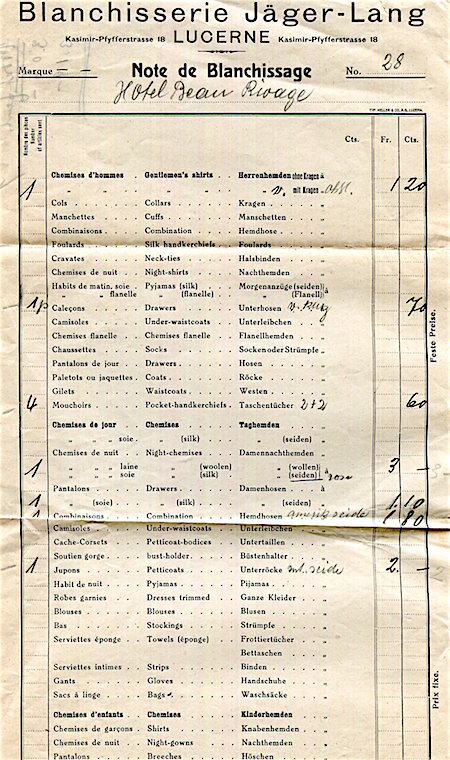 Blanchisserie Jäger-Lang
Kasimir-Pfyfferstrasse 18 LUCERNE Kasimir-Pfyfferstrasse 18
Marque — Note de Blanchissage No. 28
Hotel Beau Rivage
Cts. Fr. Cts.
Chemises d'hommes Gentlemen's shirts Herrenhemden ohne Kragen à
1 " " " " " v. mit Kragen " 1 20
Cols Collars Kragen "
Manchettes Cuffs Manschetten "
Combinaisons Combination Hemdhose "
Foulards Silk handkerchiefs Foulards "
Cravates Neck-ties Halsbinden "
Chemises de nuit Night-shirts Nachthemden "
Habits de matin, soie Pyjamas (silk) Morgenanzüge (seiden) à
" " flanelle " (flanelle) " (Flanell) "
1 p Caleçons Drawers Unterhosen " 70
Camisoles Under-waistcoats Unterleibchen "
Chemises flanelle Chemises flanelle Flanellhemden "
Chaussettes Socks Socken oder Strümpfe "
Pantalons de jour Drawers Hosen "
Paletots ou jaquettes Coats Röcke "
Gilets Waistcoats Westen "
4 Mouchoirs Pocket-handkerchiefs Taschentücher 2+2 60
Chemises de jour Chemises Taghemden
" " " soie " (silk) " (seiden) "
Chemises de nuit Night-chemises Damennachthemden "
1 " " " laine " (woolen) " (wollen) à 3 —
" " " soie " (silk) " (seiden) " rosa
Pantalons Drawers Damenhosen à
1 " (soie) " (silk) " (seiden) " 1 10
1 Combinaisons Combination Hemdhosen seide 1 80
Camisoles Under-waistcoats Unterleibchen "
Cache-Corsets Petticoat-bodices Untertaillen "
Soutien gorge bust-holder Büstenhalter "
1 Jupons Petticoats Unterröcke seide 2 —
Habit de nuit Pyjamas Pijamas "
Robes garnies Dresses trimmed Ganze Kleider "
Blouses Blouses Blusen "
Bas Stockings Strümpfe "
Serviettes éponge Towels (éponge) Frottiertücher "
Bettaschen "
Serviettes intimes Strips Binden "
Gants Gloves Handschuhe "
Sacs à linge Bags Waschsäcke "
Chemises d'enfants Chemises Kinderhemden
Chemises de garçons Shirts Knabenhemden "
Chemises de nuit Night-gowns Nachthemden "
Pantalons Breeches Höschen "
Feste Preise.
Prix fixe.